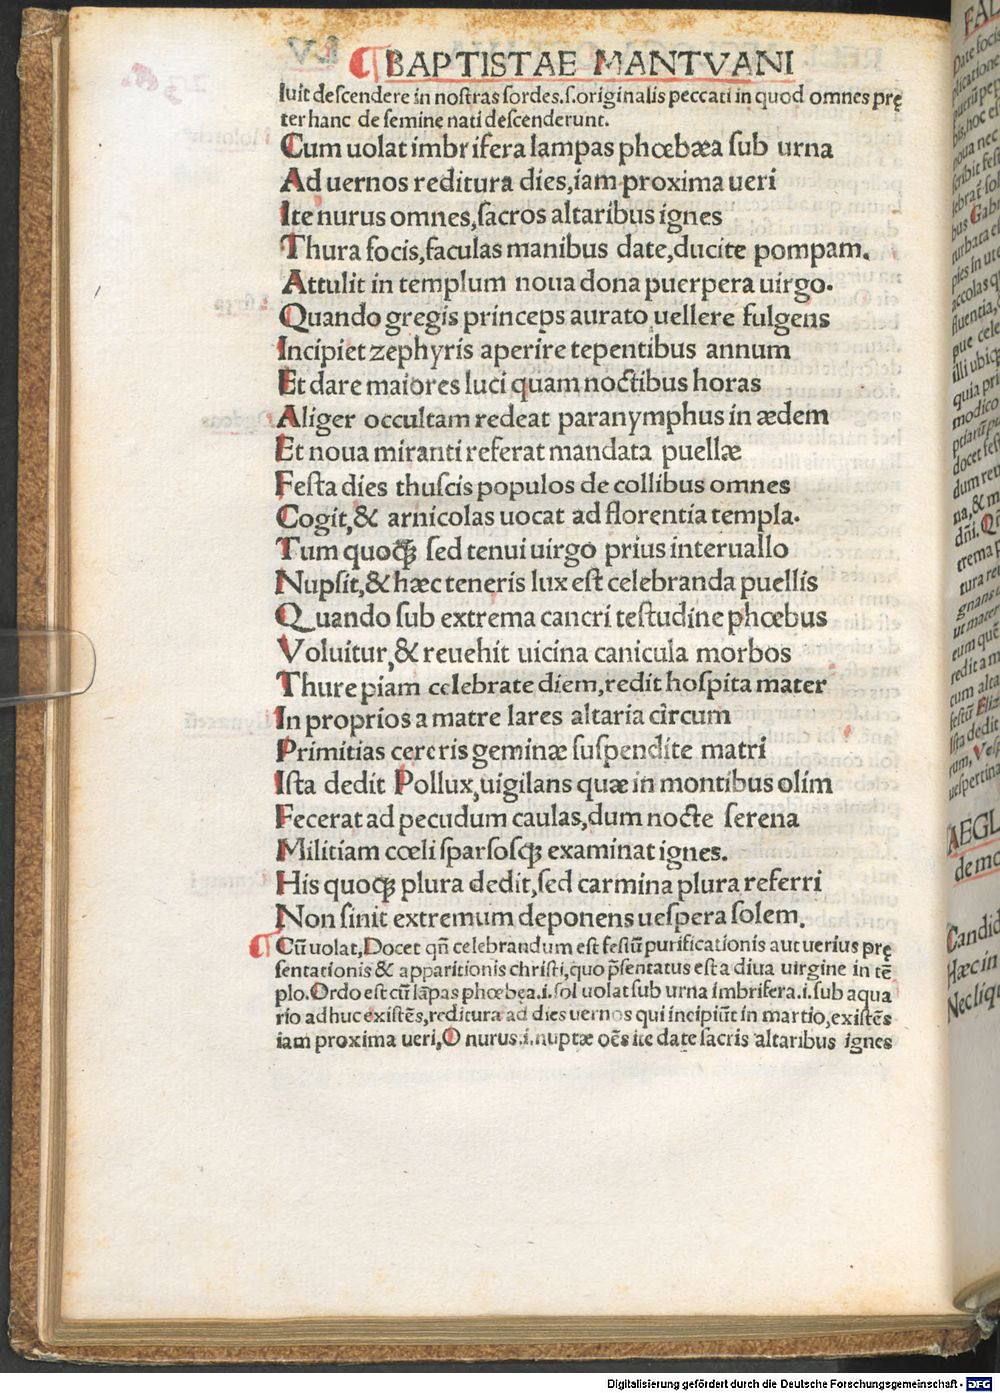 BAPTISTAE MANTVANI
luit descendere in nostras sordes.s.originalis peccati in quod omnes prę
ter hanc de semine nati descenderunt.
Cum uolat imbrifera lampas phœbæa sub urna
Ad uernos reditura dies,iam proxima ueri
Ite nurus omnes,sacros altaribus ignes
Thura focis,faculas manibus date,ducite pompam.
Attulit in templum noua dona puerpera uirgo.
Quando gregis princeps aurato uellere fulgens
Incipiet zephyris aperire tepentibus annum
Et dare maiores luci quam noctibus horas
Aliger occultam redeat paranymphus in ædem
Et noua miranti referat mandata puellæ
Festa dies thuscis populos de collibus omnes
Cogit,& arnicolas uocat ad florentia templa.
Tum quoqꝫ sed tenui uirgo prius interuallo
Nupsit,& hæc teneris lux est celebranda puellis
Quando sub extrema cancri testudine phœbus
Voluitur,& reuehit uicina canicula morbos
Thure piam celebrate diem,redit hospita mater
In proprios a matre lares altaria circum
Primitias cereris geminæ suspendite matri
Ista dedit Pollux,uigilans quæ in montibus olim
Fecerat ad pecudum caulas,dum nocte serena
Militiam cœli sparsosqꝫ examinat ignes.
His quoqꝫ plura dedit,sed carmina plura referri
Non sinit extremum deponens uespera solem.
¶ Cū uolat,Docet qñ celebrandum est festū purificationis aut uerius prę
sentationis & apparitionis christi,quo p̄sentatus est a diua uirgine in tē
plo.Ordo est cū lāpas phœbęa.i.sol uolat sub urna imbrifera.i.sub aqua
rio adhuc existēs,reditura ad dies uernos qui incipiūt in martio,existēs
iam proxima ueri,O nurus.i.nuptæ oēs ite date sacris altaribus ignes
Digitalisierung gefördert durch die Deutsche Forschungsgemeinschaft - DFG